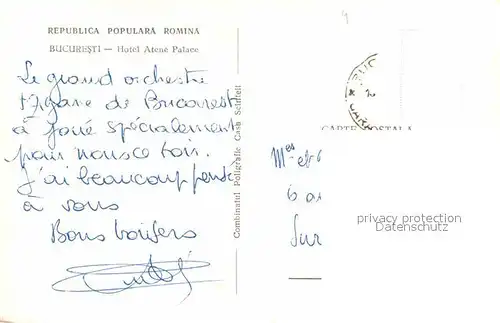 REPUBLICA POPULARA ROMINA
BUCUREŞTI — Hotel Atené Palace
Le grand orchestre
tzigane de Bucarest
à joué spécialement
pour nous ce soir.
J'ai beaucoup pensé
à vous
Bons baisers
Combinatul Poligrafic Casa Scînteii
CARTE POSTALA
Mes et
Sur
privacy protection
Datenschutz